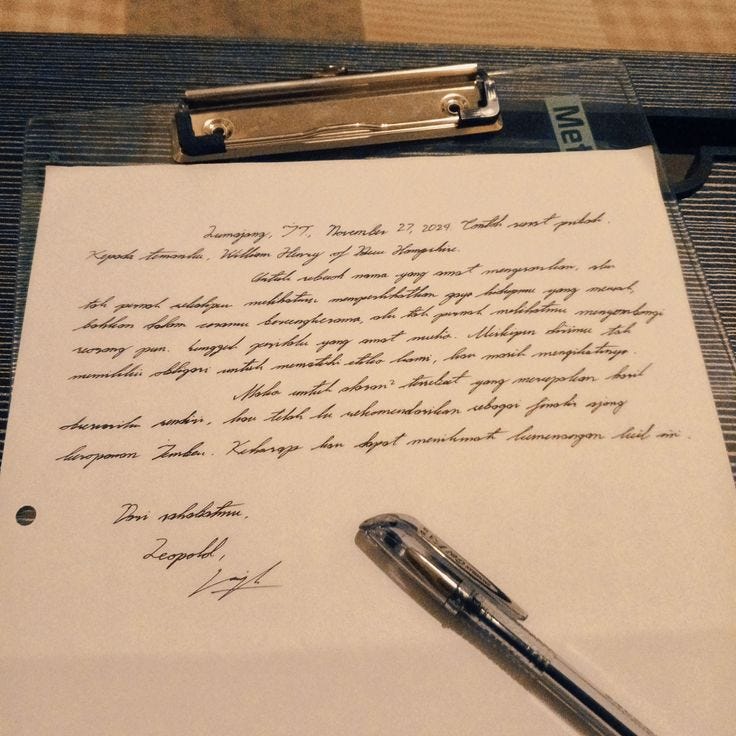 Met
Lumajang, JT., November 27, 2024. Contoh surat pribadi.
Kepada temanku, William Henry of New Hampshire.
Untuk sebuah nama yang amat mengesankan, aku
tak pernah sekalipun melihatmu memperlihatkan gaya hidupmu yang mewah,
bahkan dalam caramu bercengkerama, aku tak pernah melihatmu menyombongi
seorang pun. Sungguh perilaku yang amat mulia. Meskipun dirimu tak
memiliki obligasi untuk mematuhi etika kami, kau masih mengikutinya.
Maka untuk tersebut yang merupakan hasil
sendiri, kau telah ku rekomendasikan sebagai finalis ajang
Jember. Kuharap kau dapat menikmati kemenangan kecil ini.
Dari sahabatmu,
Leopold,